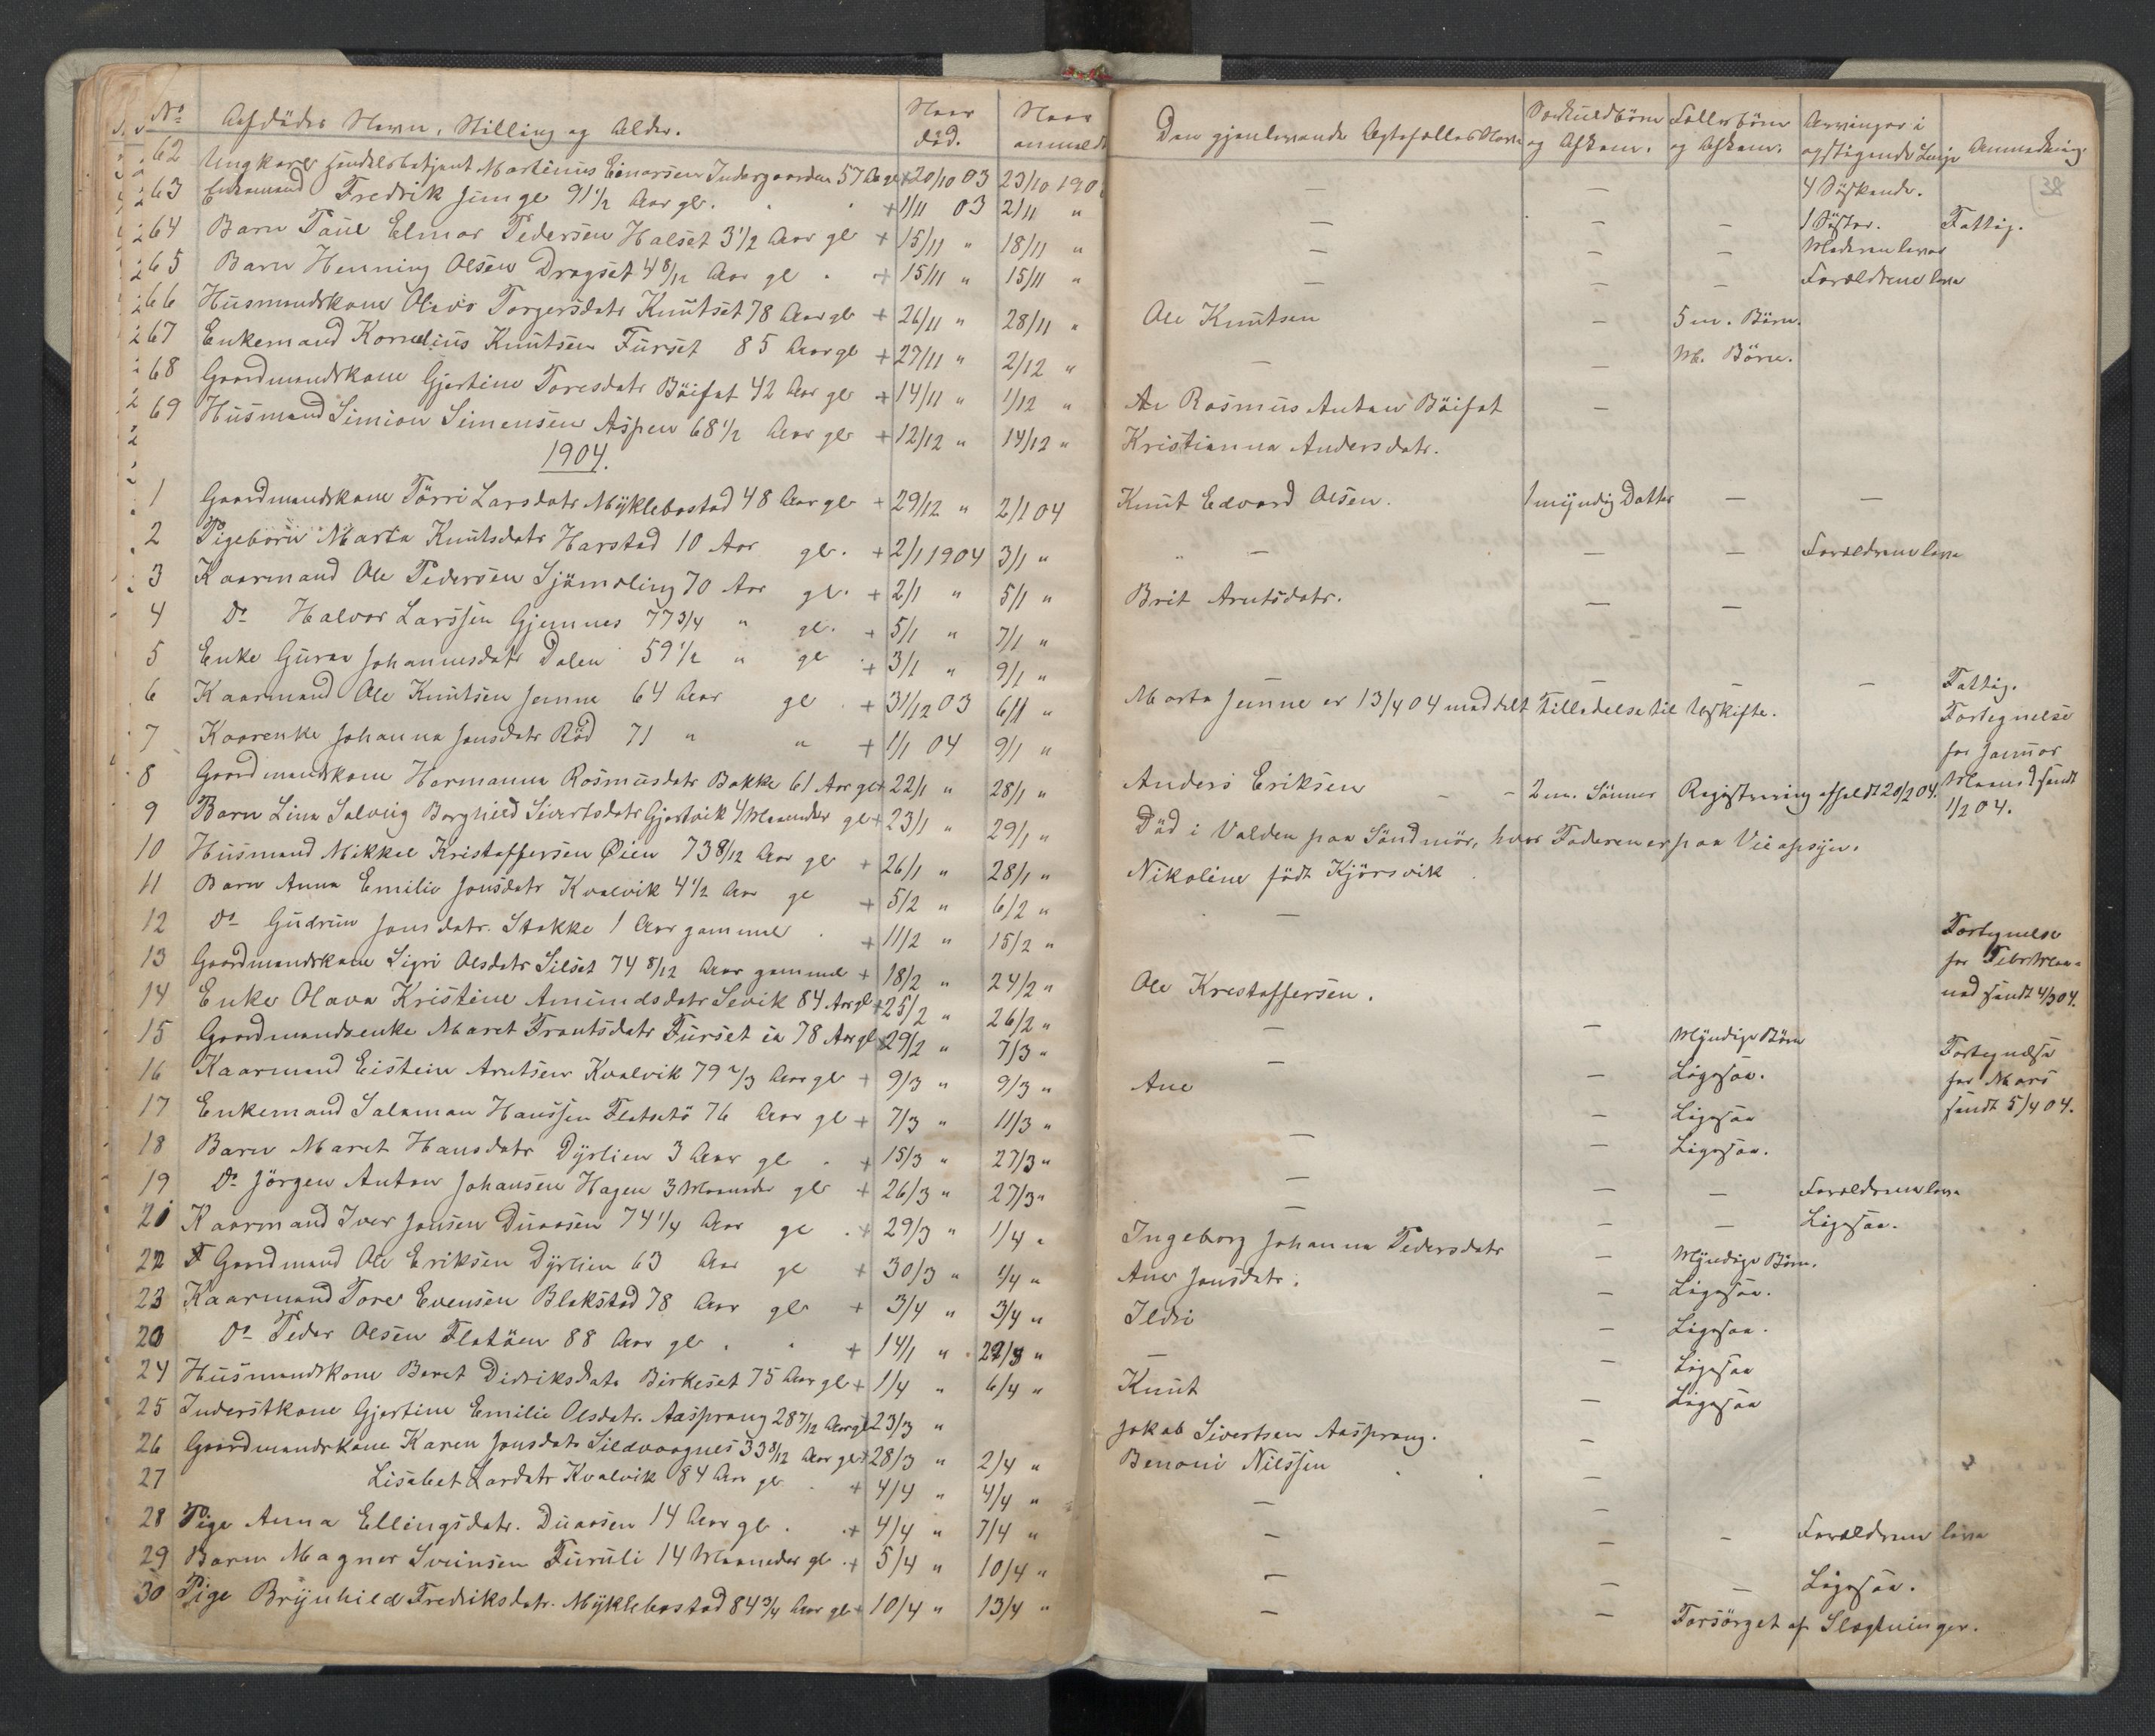 No Afdødes Navn, Stilling og Alder. Naar død. Naar anmeldt Den gjenlevende Ægtefælles Navn Særkuldbørn og Afkom. Fællesbørn og Afkom. Arvinger i opstigende Linje Anmerkning
38
62 Ungkarl Handelsbetjent Martinus Einarsen Indergaarden 57 Aar gl + 20/10 03 23/10 190 — — 4 Søskende.
63 Enkemand Fredrik Junge 91 1/2 Aar gl. + 1/11 03 2/11 " — — — 1 Søster. Fattig.
64 Barn Paul Elmar Pedersen Halset 3 1/2 Aar gl + 15/11 " 18/11 " — — — Moderen lever
65 Barn Henning Olsen Dragset 4 8/12 Aar gl + 15/11 " 15/11 " — — — Forældrene leve
66 Husmandskone Olava Torgersdatr Knutset 78 Aar gl + 26/11 " 28/11 " Ole Knutsen — 5 m. Børn.
67 Enkemand Kornelius Knutsen Furset 85 Aar gl + 27/11 " 2/12 " — — M. Børn.
68 Gaardmandskone Gjertine Toresdatr Böifot 42 Aar gl + 14/11 " 1/12 " Rasmus Antan Böifot —
69 Husmand Simion Simensen Aspen 68 1/2 Aar gl + 12/12 " 14/12 " Kristianna Andersdatr.
1904.
1 Gaardmandskone Törri Larsdatr Myklebostad 48 Aar gl + 29/12 " 2/1 04 Knut Edvard Olsen. 1 myndig Datter — —
2 Pigebörn Marta Knutsdatr Harstad 10 Aar gl. + 2/1 1904 3/1 " — — — Forældrene leve
3 Kaarmand Ole Pedersen Sjömæling 70 Aar gl. + 2/1 " 5/1 " Brit Arntsdatr. — —
4 Do Halvor Larssen Gjemnes 77 3/4 " gl. + 5/1 " 7/1 "
5 Enke Guron Johannesdatr Dalen 59 1/2 " gl + 3/1 " 9/1 " — — — Fattig.
6 Kaarmand Ole Knutsen Jenne 64 Aar gl + 31/12 03 6/1 " Marta Jenne er 13/4 04 meddelt Tilladelse til Uskifte. Fortegnelse
7 Kaarenke Johanna Jonsdatr Röd 71 " " + 1/1 04 9/1 " for Januar
8 Gaardmandskone Hermanna Rasmusdatr Bakke 61 Aar gl + 22/1 " 28/1 " Anders Eriksen - - 2 m. Sönner Registrering afholdt 20/2 04. Maaned sendt
9 Barn Lina Solveig Borghild Sivertsdatr Gjortvik 4 Maaneder gl + 23/1 " 29/1 " Död i Valden paa Söndmör, hvor Faderen er paa Veiopsyn. 1/2 04.
10 Husmand Mikkel Kristoffersen Øien 73 8/12 Aar gl + 26/1 " 28/1 " Nikoline født Kjörsvik
11 Barn Anna Emilie Jonsdatr Kvalvik 4 1/2 Aar gl + 5/2 " 6/2 " —
12 Do Gudrun Jonsdatr. Stokke 1 Aar gammel + 11/2 " 15/2 " Fortegnelse
13 Gaardmandskone Sigri Olsdatr Silset 74 8/12 Aar gammel + 18/2 " 24/2 " Ole Krestoffersen. for Febr Maa-
14 Enke Olava Kristine Amundsdatr Sevik 84 Aar gl + 25/2 " 26/2 " — — Myndige Börn ned sendt 4/3 04.
15 Gaardmandsenke Maret Frantsdatr Furset ca 78 Aar gl + 29/2 " 7/3 " — — Ligesaa. Fortegnelse
16 Kaarmand Eistein Arntsen Kvalvik 79 2/3 Aar gl + 9/3 " 9/3 " Ane — Ligesaa for Mars
17 Enkemand Salamon Hanssen Flatsetö 76 Aar gl + 7/3 " 11/3 " — — Ligesaa. sendt 5/4 04.
18 Barn Maret Hansdatr Dyrlien 3 Aar gl + 15/3 " 27/3 " — — — Forældrene leve
19 Do Jörgen Antan Johansen Hagen 3 Maaneder gl + 26/3 " 27/3 " — — — Ligesaa.
21 Kaarmand Iver Jonsen Duaasen 74 1/4 Aar gl + 29/3 " 1/4 " Ingeborg Johanna Pedersdatr — Myndige Börn.
22 F Gaardmand Ole Eriksen Dyrlien 63 Aar gl + 30/3 " 1/4 " Ane Jonsdatr. — Ligesaa.
23 Kaarmand Tore Evensen Blakstad 78 Aar gl + 3/4 " 3/4 " Ildri — Ligesaa.
20 Do Peder Olsen Flatöen 88 Aar gl + 14/1 " 29/3 " — — Ligesaa
24 Husmandskone Beret Didriksdatr Birkeset 75 Aar gl + 1/4 " 6/4 " Knut — Ligesaa
25 Inderstkone Gjertine Emilie Olsdatr. Aasprang 28 7/12 Aar gl 23/3 " Jakob Sivertsen Aasprang. —
26 Gaardmandskone Karen Jonsdatr Sildvaagnes 33 8/12 Aar gl + 28/3 " 2/4 " Benoni Nilssen —
27 Lisabet Lardatr Kvalvik 84 Aar gl + 4/4 " 4/4 " — —
28 Pige Anna Ellingsdatr. Duaasen 14 Aar gl + 4/4 " 7/4 " — — - Forældrene leve
29 Barn Magner Sveinsen Furuli 14 Maaneder gl + 5/4 " 10/4 " — — — Ligesaa.
30 Pige Brynhild Fredriksdatr. Myklebostad 84 3/4 Aar gl + 10/4 " 13/4 " — — Forsörget af Slægtninger.